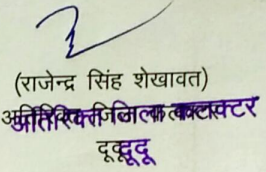 (राजेन्द्र सिंह शेखावत)
अतिरिक्त जिला कलक्टर
दूदू